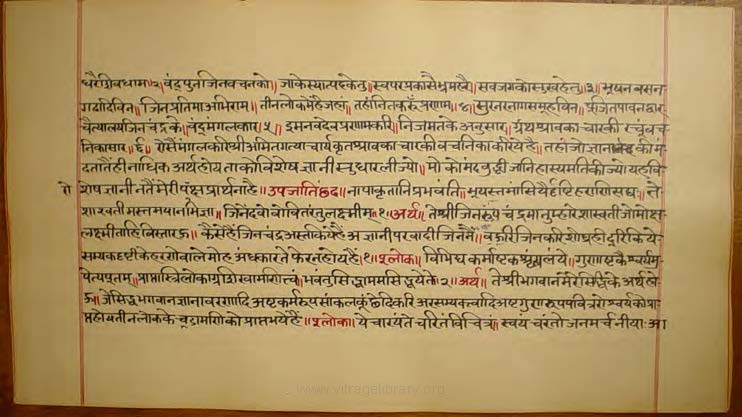 धरैंशिवधाम॥२॥ वंदूं पुनजिनवचनको॥ जाकेस्यात्पदकेतु॥ स्वपरप्रकासै भ्रमहरै॥ सबजगकोसुखहेतु॥३॥ भूषनबसन
गदादिविन॥ जिनप्रतिमाअभिराम॥ तीनलोकमैंहैजहां॥ तहांनितकरूंप्रणाम॥४॥ सुरनरनागसमूहविन॥ पूजितपावनद्वार
चैत्यालयजिनचंद्रके॥ वंदूंमंगलकार॥५॥ इमनवदेवप्रणामकरि॥ निजमतकेअनुसार॥ ग्रंथश्रावकाचारकी रचूंवच
निकासार॥६॥ ऐसैंमंगलकरिश्रीअमितगत्याचार्यकृतश्रावकाचारकीवचनिकाकरियेहै॥ तहांजोज्ञानकीमं
दतातैंहीनाधिकअर्थहोयताकोविशेषज्ञानीसुधारलीज्यो॥ मोकोमंदबुद्धीजानिहास्यमतिकीज्योयहवि
शेषज्ञानीनतैंमेरीपरोक्षप्रार्थनाहै॥ उपजातिछंद॥ नापाकृतानिप्रभवंति॥ भूयस्तमांसियैर्दृष्टिहराणिसद्यः॥ ते
शाश्वतीमस्तमयानभिज्ञा॥ जिनेंदवोवोवितरंतुलक्ष्मीम्॥१॥ अर्थ॥ तेश्रीजिनरूपचंद्रमातुम्हारेशास्वतीजोमोक्ष
लक्ष्मीताहिविस्तारऊ॥ कैसेहैंजिनचंद्रअस्तकियेहैंअज्ञानीपरवादीजिननैं॥ बहुरिजिनकरिशीघ्रहीदूरिकिये
सम्यकदृष्टीकेहरणेवालेमोहअंधकारतेफेरनहोयहैं॥१॥ श्लोक॥ विभिद्यकर्माष्टकशृंखलांये॥ गुणाष्टकैश्वर्यमु
पेत्यपूतम्॥ प्राप्तास्त्रिलोकाग्रशिखामणित्वं॥ भवंतुसिद्धाममसिद्धयेते॥२॥ अर्थ॥ तेश्रीभगवानमेरेसिद्धिकेअर्थहो
ऊ॥ जेसिद्धभगवानज्ञानावरणादिअष्टकर्मरूपसांकलकूंछेदिकरिअरसम्यक्त्वादिअष्टगुणरूपपवित्रऐश्वर्यकोप्रा
प्तहोयतीनलोककेचूडामणिकोप्राप्तभयेहैं॥ श्लोक॥ येचारयंतेचरितंविचित्रं॥ स्वयंचरंतोजनमर्चनीयाः आ
www.vitragelibrary.org